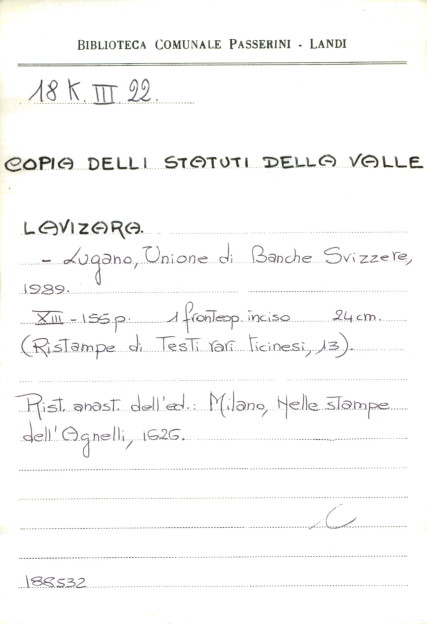 BIBLIOTECA COMUNALE PASSERINI - LANDI
18 K. III 22.
COPIA DELLI STATUTI DELLA VALLE
LAVIZARA.
- Lugano, Unione di Banche Svizzere,
1989.
XIII - 155 p. 1 frontesp. inciso 24 cm.
(Ristampe di Testi rari ticinesi, 13).
Rist. anast. dell'ed.: Milano, Nelle stampe
dell'Agnelli, 1626.
C
188532